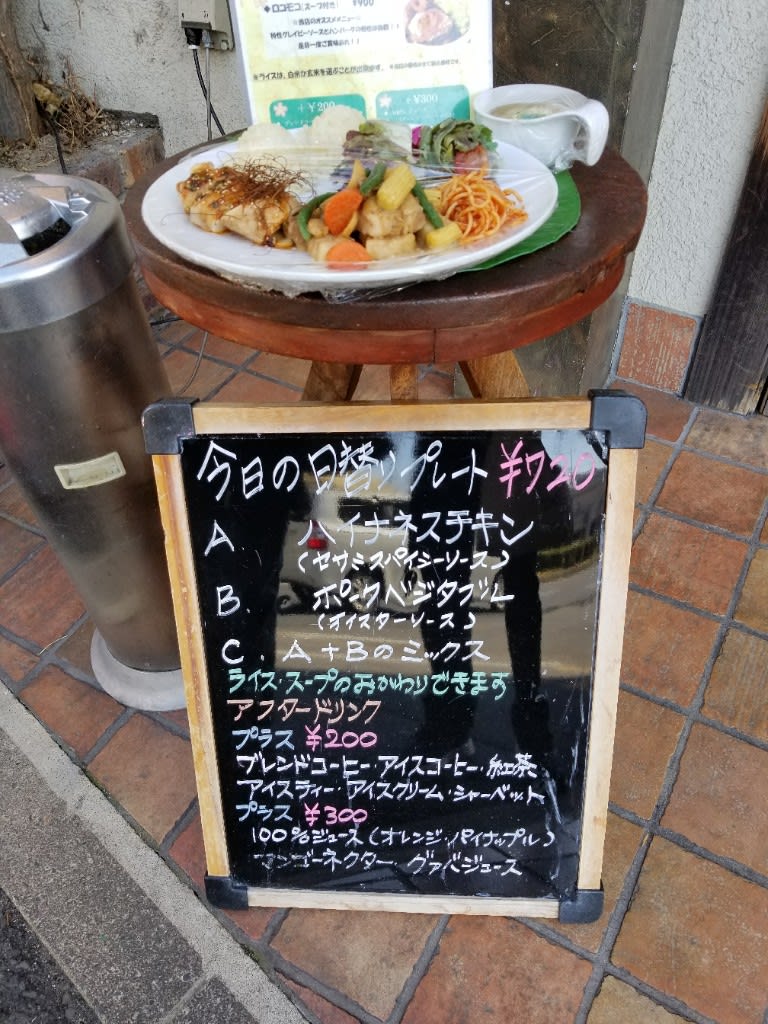 ◆ロコモコ(スープ付き) ¥900
※当店のオススメメニュー☆
特性グレイビーソースとハンバーグの相性は抜群!!
是非一度ご賞味あれ!!
※ライスは、白米か玄米を選ぶことが出来ます。
+¥200
+¥300
今日の日替りプレート ¥720
A. ハイナネスチキン
(セサミスパイシーソース)
B. ポークベジタブル
(オイスターソース)
C. A+Bのミックス
ライス・スープのおかわりできます
アフタードリンク
プラス ¥200
ブレンドコーヒー・アイスコーヒー・紅茶
アイスティー・アイスクリーム・シャーベット
プラス ¥300
100%ジュース(オレンジ・パイナップル)
マンゴーネクター・グァバジュース